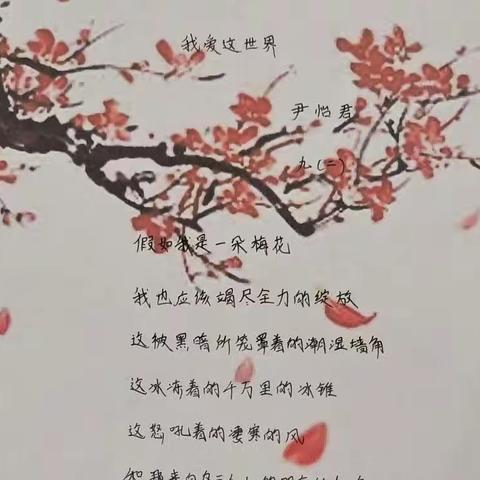 我爱这世界
尹怡君
九(一)
假如我是一朵梅花
我也应该竭尽全力的绽放
这被黑暗所笼罩着的潮湿墙角
这冰冻着的千万里的冰锥
这怒吼着的凄寒的风
和那来自